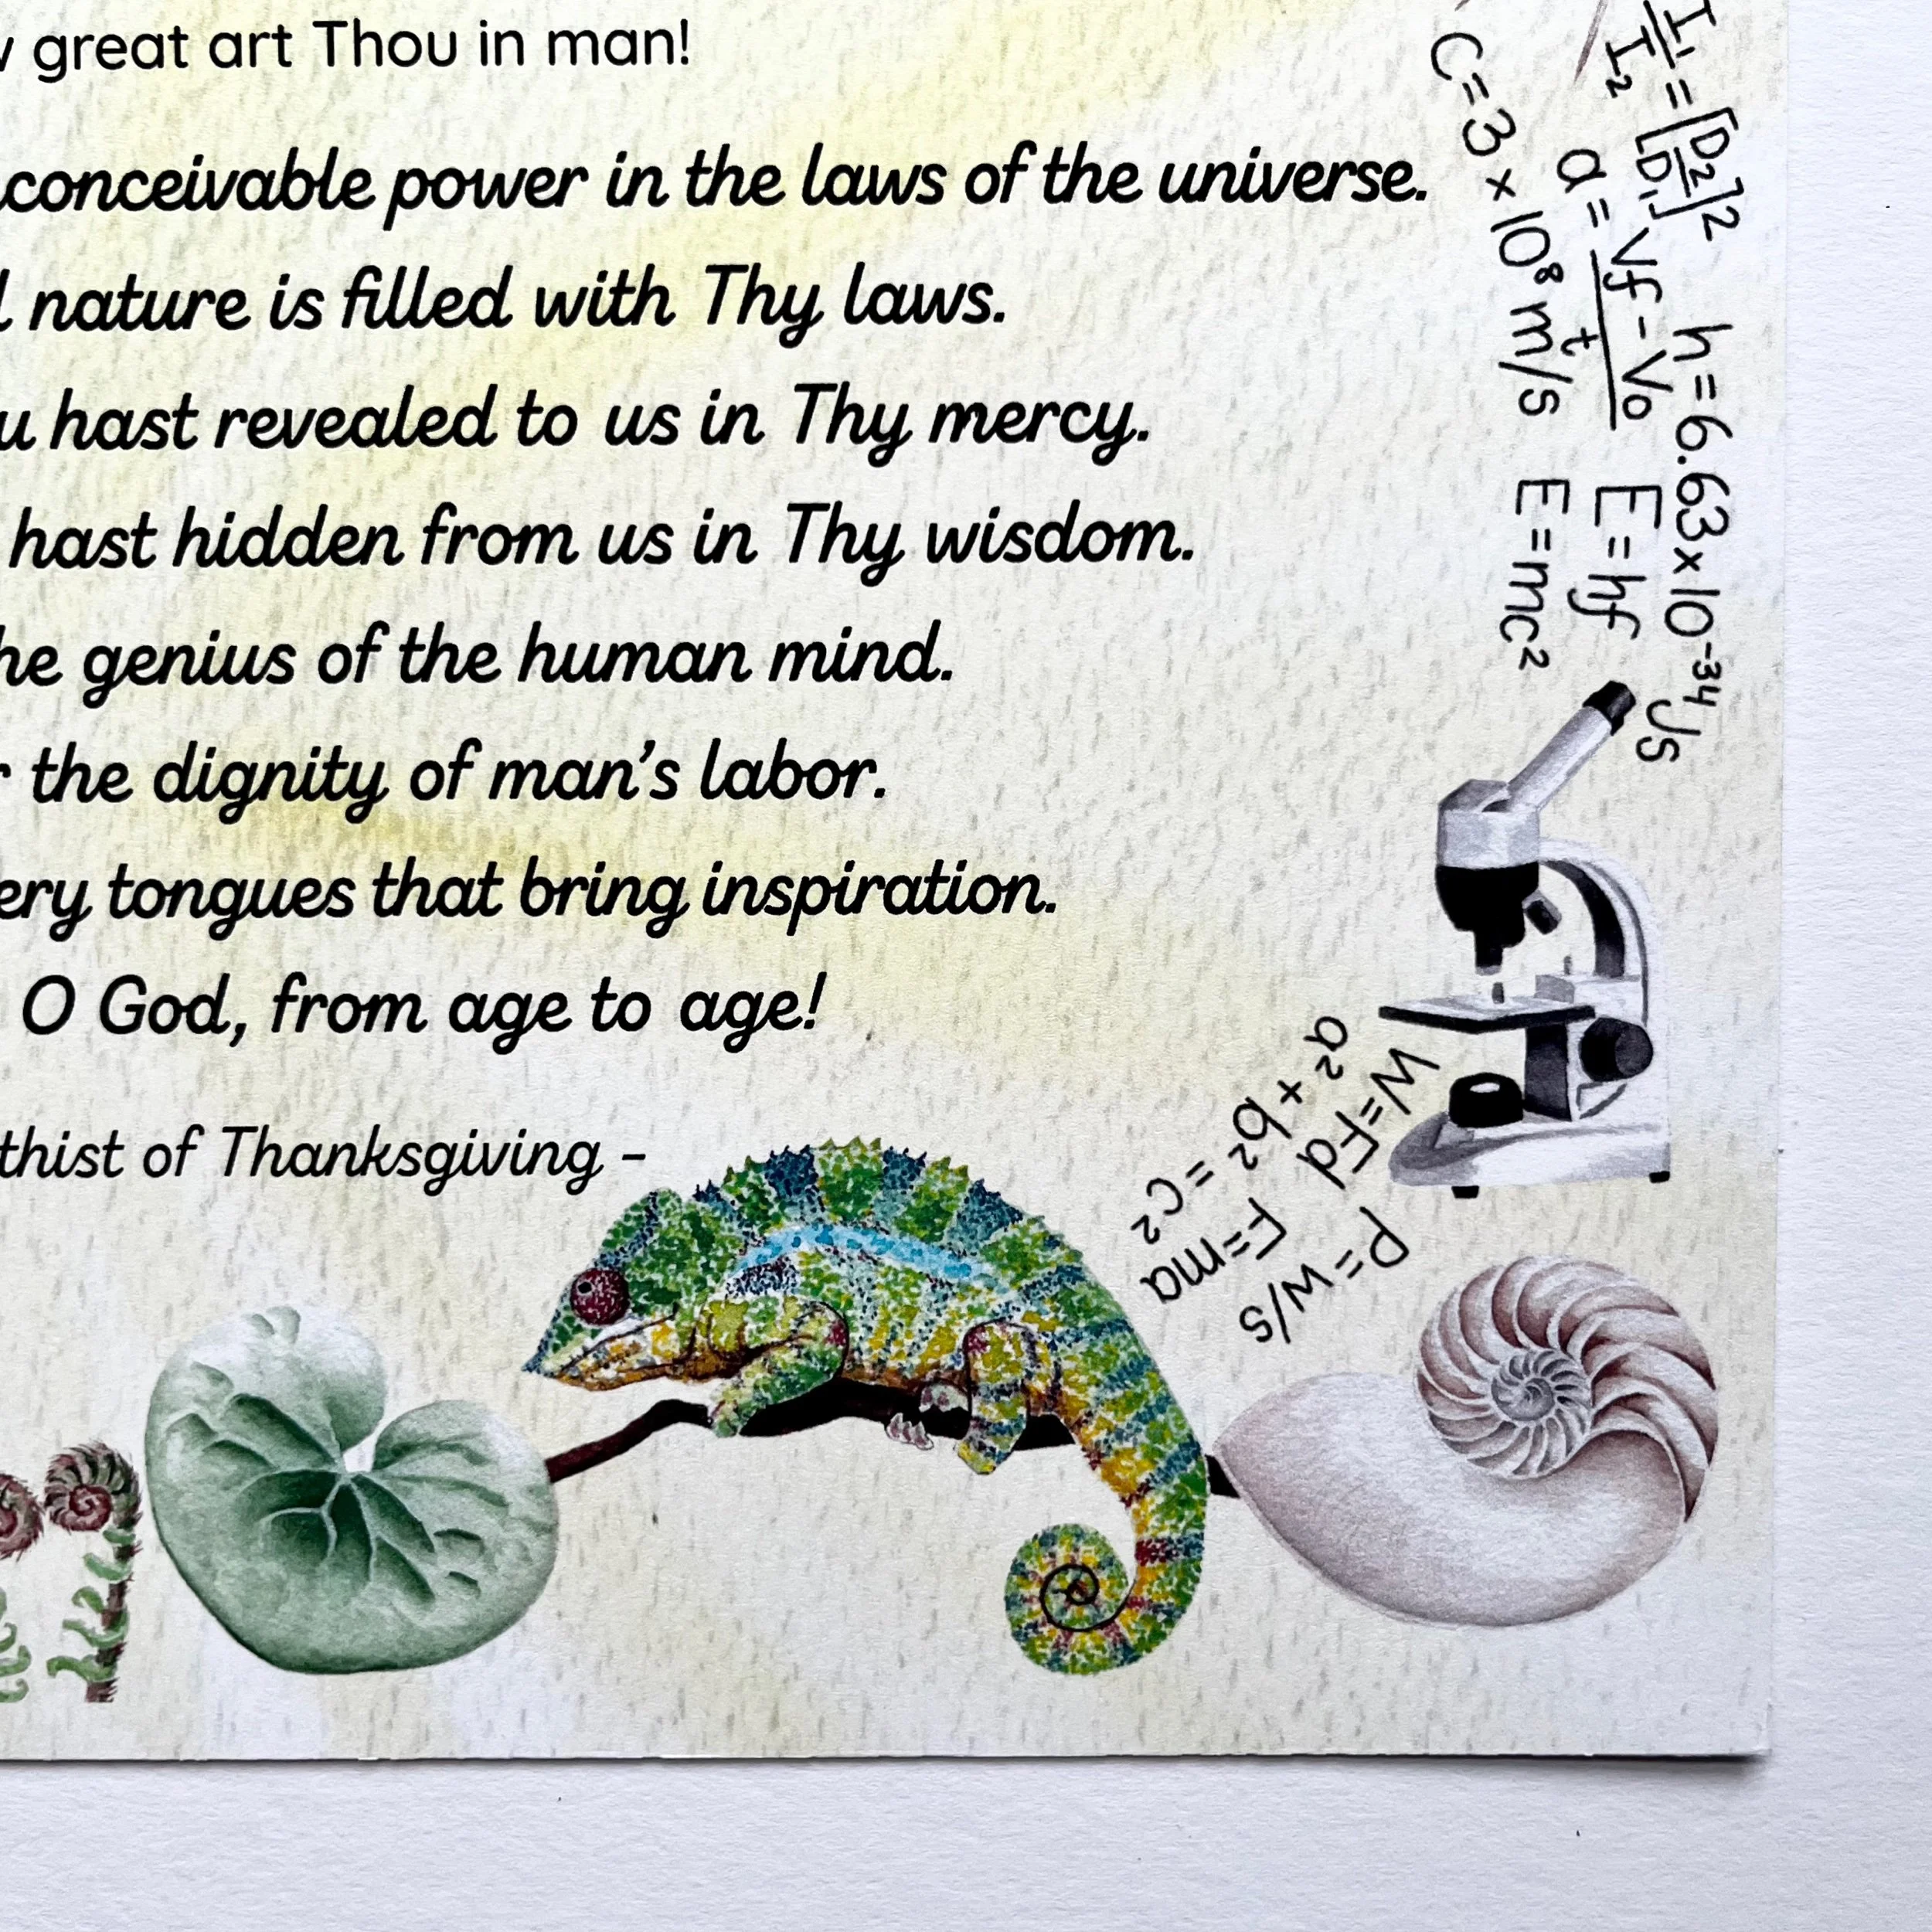 great art Thou in man!
conceivable power in the laws of the universe.
nature is filled with Thy laws.
hast revealed to us in Thy mercy.
hast hidden from us in Thy wisdom.
he genius of the human mind.
the dignity of man's labor.
ery tongues that bring inspiration.
O God, from age to age!
thist of Thanksgiving -
I₁/I₂ = [D₂/D₁]²
C=3 × 10⁸ m/s
a = Vf - Vo / t
h = 6.63×10⁻³⁴ Js
E = hf
E = mc²
a² + b² = c²
W=Fd
F=ma
P=w/s